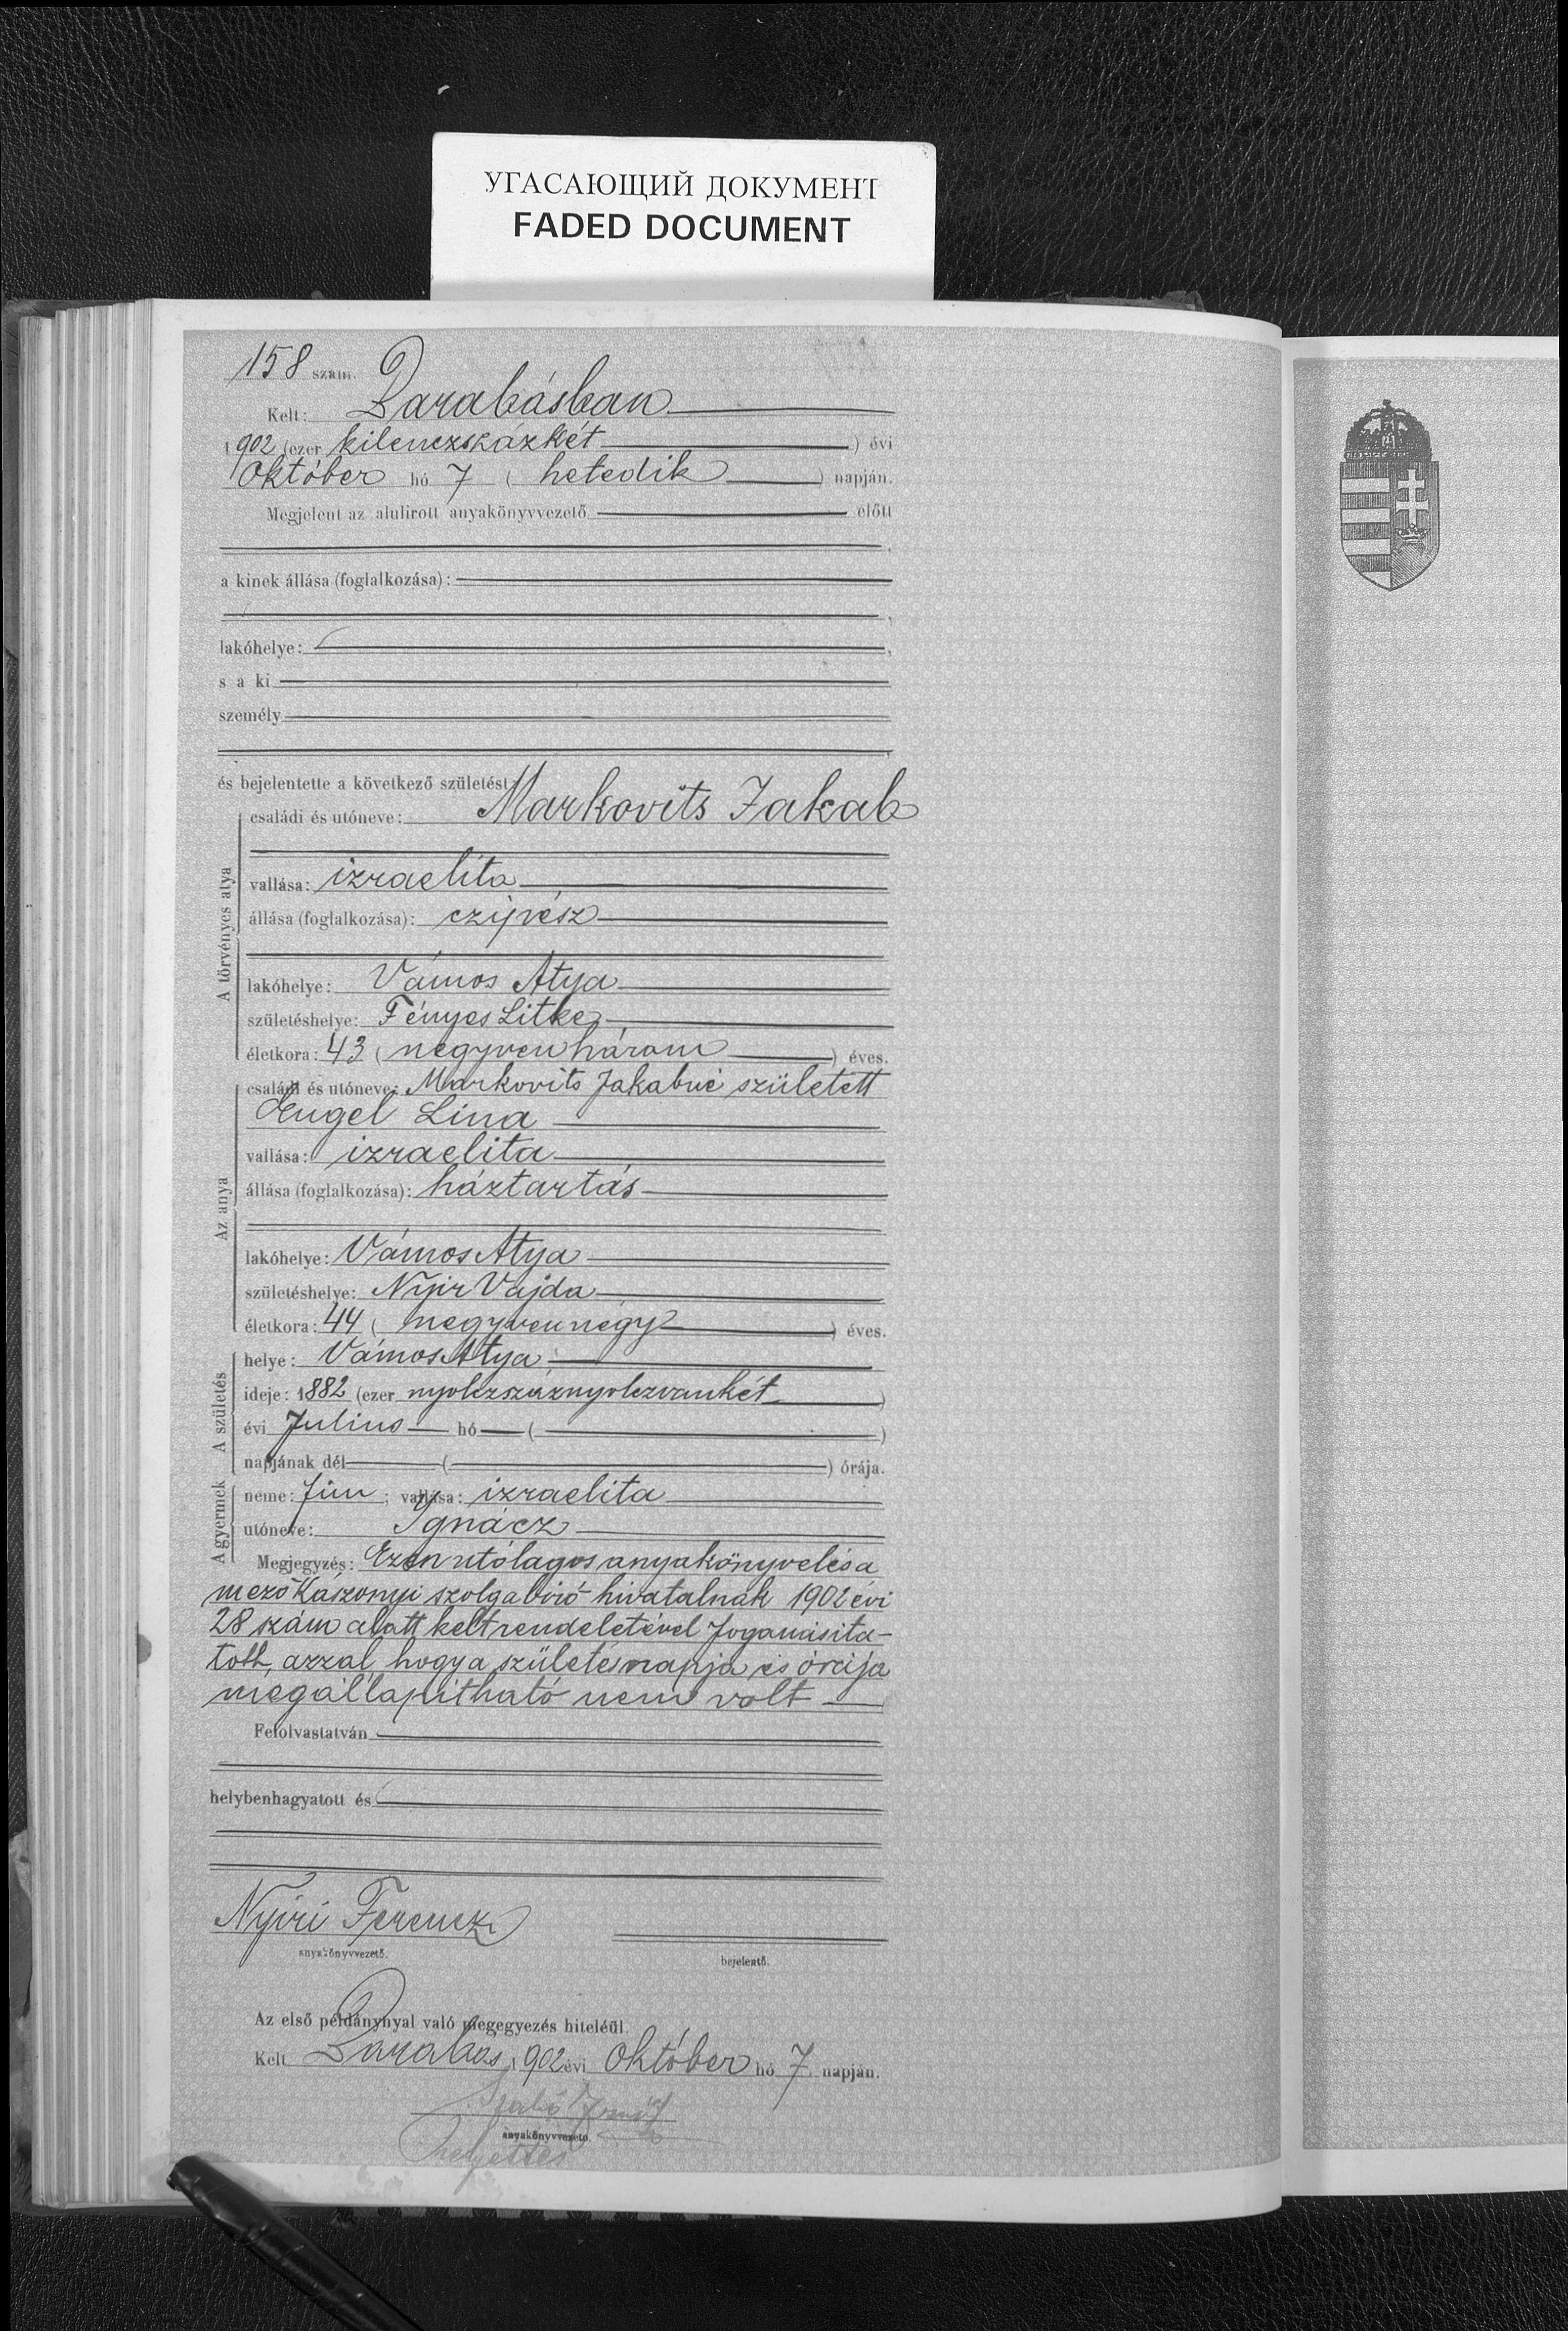 УГАСАЮЩИЙ ДОКУМЕНТ
FADED DOCUMENT
158 szám.
Kelt: Barabásban
1902 (ezer kilenczszázkét ) évi
Október hó 7 ( hetedik ) napján.
Megjelent az alulirott anyakönyvvezető előtt
a kinek állása (foglalkozása):
lakóhelye:
s a ki
személy
és bejelentette a következő születést:
A törvényes atya
családi és utóneve: Markovits Jakab
vallása: izraelita
állása (foglalkozása): czipész
lakóhelye: Vámos Atya
születéshelye: Fényes Litke
életkora: 43 ( negyvenhárom ) éves.
Az anya
családi és utóneve: Markovits Jakabné született
Engel Lina
vallása: izraelita
állása (foglalkozása): háztartás
lakóhelye: Vámos Atya
születéshelye: Nyír Vajda
életkora: 44 ( negyvennégy ) éves.
A születés
helye: Vámos Atya
ideje: 1882 (ezer nyolczszáznyolczvankét )
évi Julius hó ( )
napjának dél ( ) órája.
A gyermek
neme: fiu ; vallása: izraelita
utóneve: Ignácz
Megjegyzés: Ezen utólagos anyakönyvelés a
mező Kászonyi szolgabiró hivatalnak 1902 évi
28 szám alatt kelt rendeletével foganasita-
tott, azzal hogy a születés napja és órája
megállapitható nem volt
Felolvastatván
helybenhagyatott és
Nyiri Ferencz
anyakönyvvezető.
bejelentő.
Az első példánynyal való megegyezés hiteléül.
Kelt Barabás 1902 évi Október hó 7. napján.
Szabó
anyakönyvvezető.
helyettes